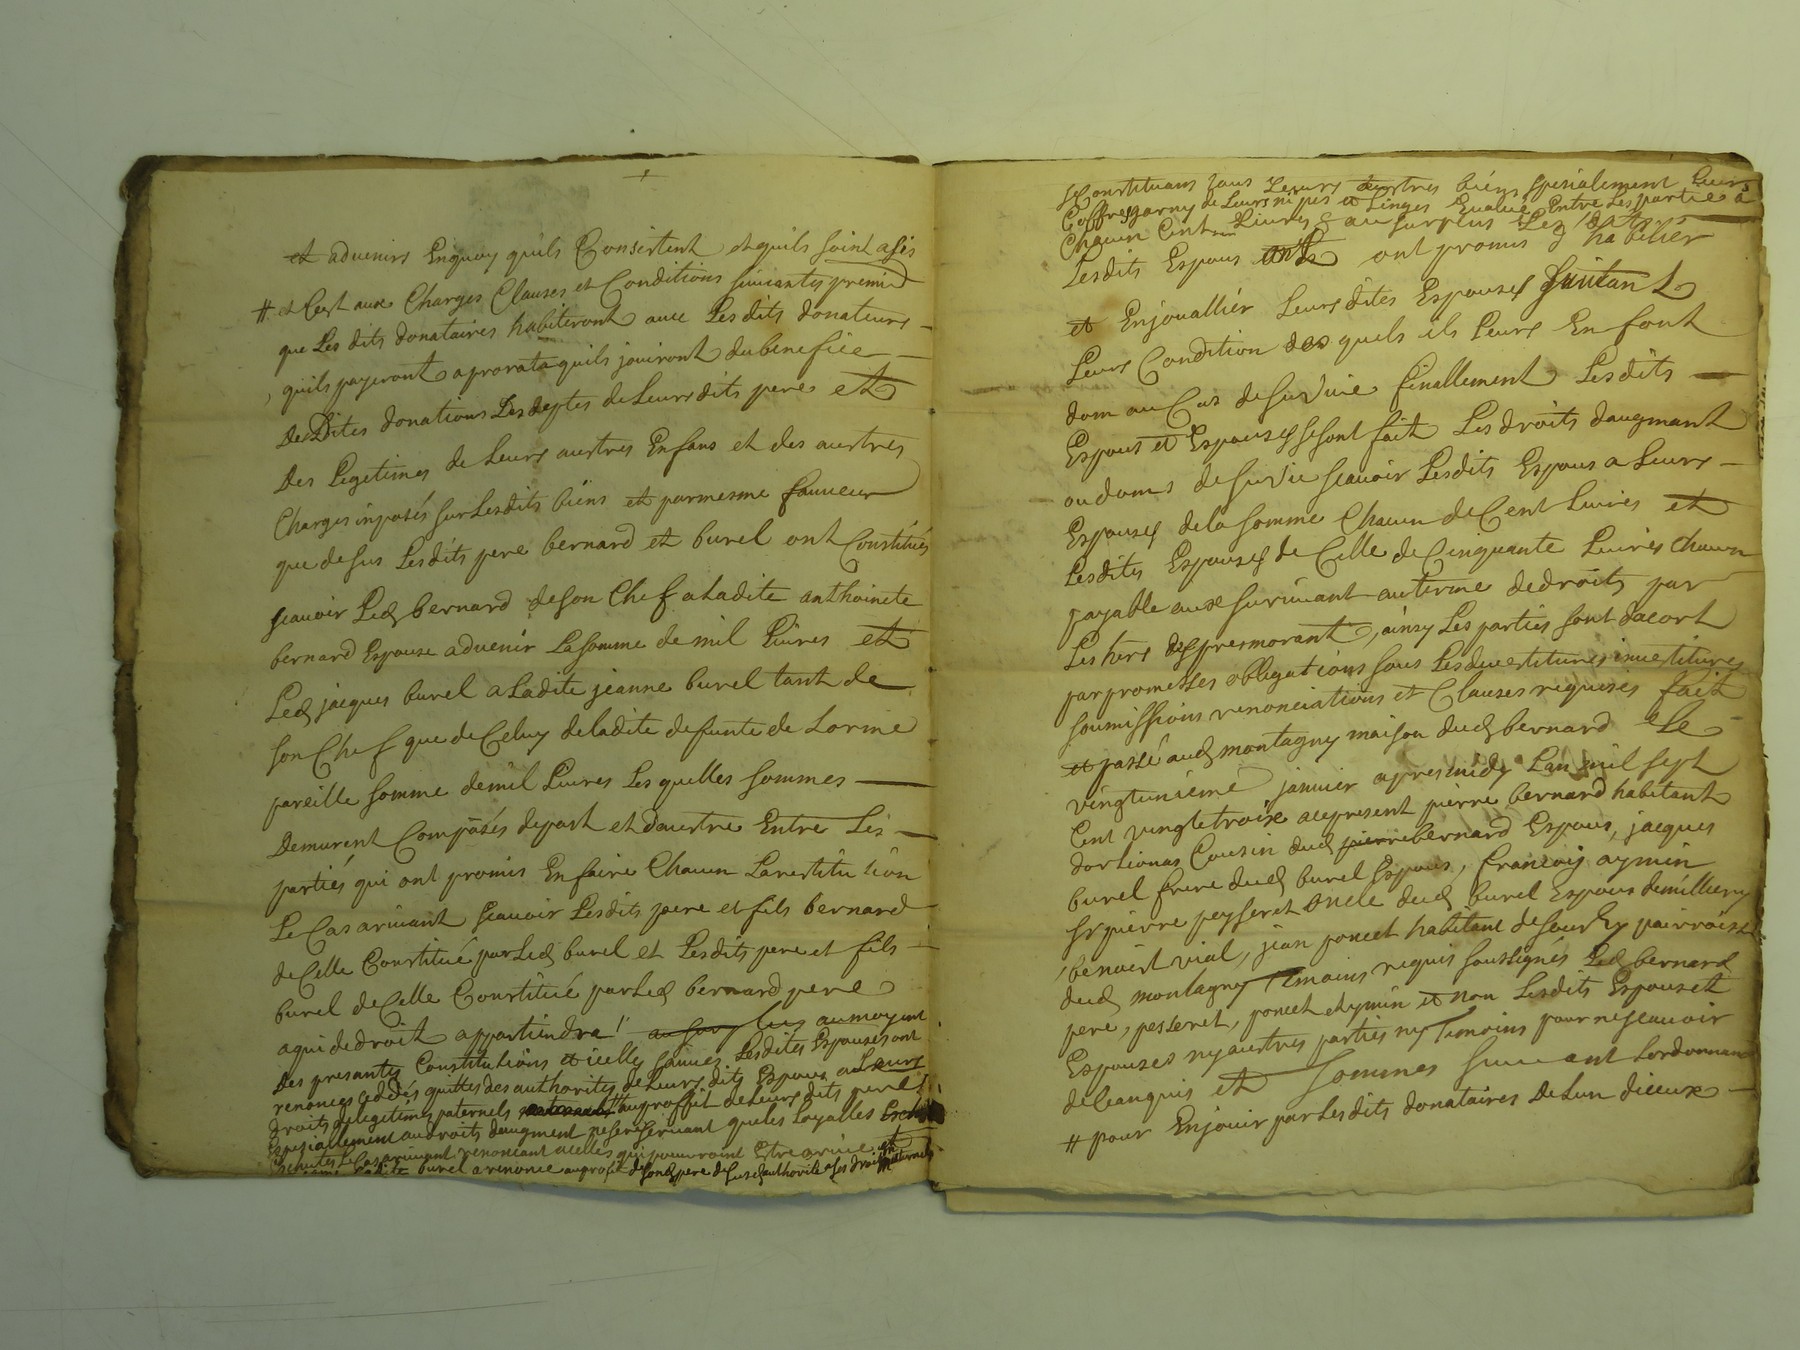 et advenirs Enquoy quils Consistent et quils soint assis
# et Cest aux Charges Clauses et Conditions suivantes premier
que Les dits donataires habiteront avec Lesdits donateurs
quils payeront aprorata quils joüiront du benefice
Desdites donations Les deptes de Leurs dits peres et
Des Legitimes de Leurs auttres Enfans et des auttres
Charges inposés sur Lesdits biens et par mesme faveur
que desus Lesdits pere bernard et burel ont Constitués
scavoir Led bernard de son Chef a Ladite anthoinete
bernard Espouse advenir La somme de mil Livres et
Led jacques burel a Ladite jeanne burel tant de
son Chef que de Celuy de ladite defunte de Lorme
pareille somme de mil Livres Lesquelles sommes
Demurent Composés depart et dauttre Entre Les
parties qui ont promis En faire Chacun La restitution
Le Cas arivant scavoir Lesdits pere et fils bernard
de Celle Constitué par Led burel et Lesdits pere et fils
burel de Celle Constitué par Led bernard pere
a qui de droit appartiendra au moyent
Des presantes Constitutions et icelles Lesdites Espouses ont
renonces cedées quittes des authorites de Leurs dits Espoux a Leurs
droits de legitimes paternels au proffit de Leurs dits peres
Espesiallement au droits daugment ne se reservant que les Loyalles
Le Cas arivant renonciant a celles qui pouvroint Estre arivé et
ladite burel a renoncé au profit de sond pere de sused authorité a ses droits maternels
se Constituans tous Leurs auttres biens spesialement Leurs
Coffres garny de Leurs nipes et Linges Evalué Entre Les parties a
Chacun Cent Livres & au surplus
Lesdits Espoux ont promis habilier
et Enjouallier Leurs dites Espouses suivant
Leurs Condition desquels ils Leurs En font
dom au Cas de survivie finallement Lesdits
Espoux et Espouses se sont fait Les droits daugmant
ou doms de survie scavoir Lesdits Espoux a Leurs
Espouses de la somme Chacun de Cent Livres et
Lesdites Espouses de Celle de Cinquante Livres Chacun
payable aux survivant au terme de droits par
Les hers des premorant, ainsy Les parties sont dacort
par promesses obligations sous Les devestitures investitures
soumissions renonciations et Clauses requises fait
et passé aud montagny maison dud bernard Le
vingtunieme janvier apres midy Lan mil sept
Cent vingt et troix au present pierre bernard habitant
dorlionas Cousin dud pierre bernard Espoux, jacques
burel frere dud burel Espoux, francois aymin
sr pierre peysseret oncle dud burel Espoux de millery
benoist vial, jean poncet habitant de sourzy parroisse
dud montagny Temoins requis soussignés Led bernard
pere, peseret, poncet et aymin et non Lesdits Espoux et
Espouses ny auttres parties ny Temoins pour ne scavoir
de Ceanquis et sommes suivant Lordonnance
# pour En joüir par Lesdits donataires De Lun dieux